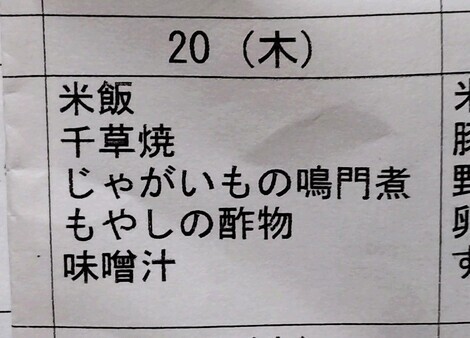 20 (木)
米飯
千草焼
じゃがいもの鳴門煮
もやしの酢物
味噌汁